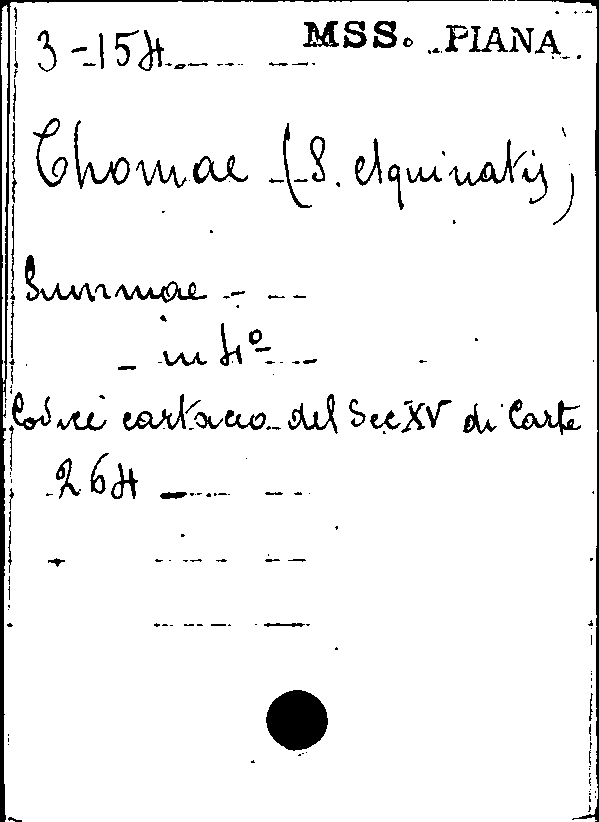 3-154 MSS. PIANA
Thomae (S. Aquinatis)
Summae -
- in 4º
Codice cartaceo del Sec XV di Carte
264 -